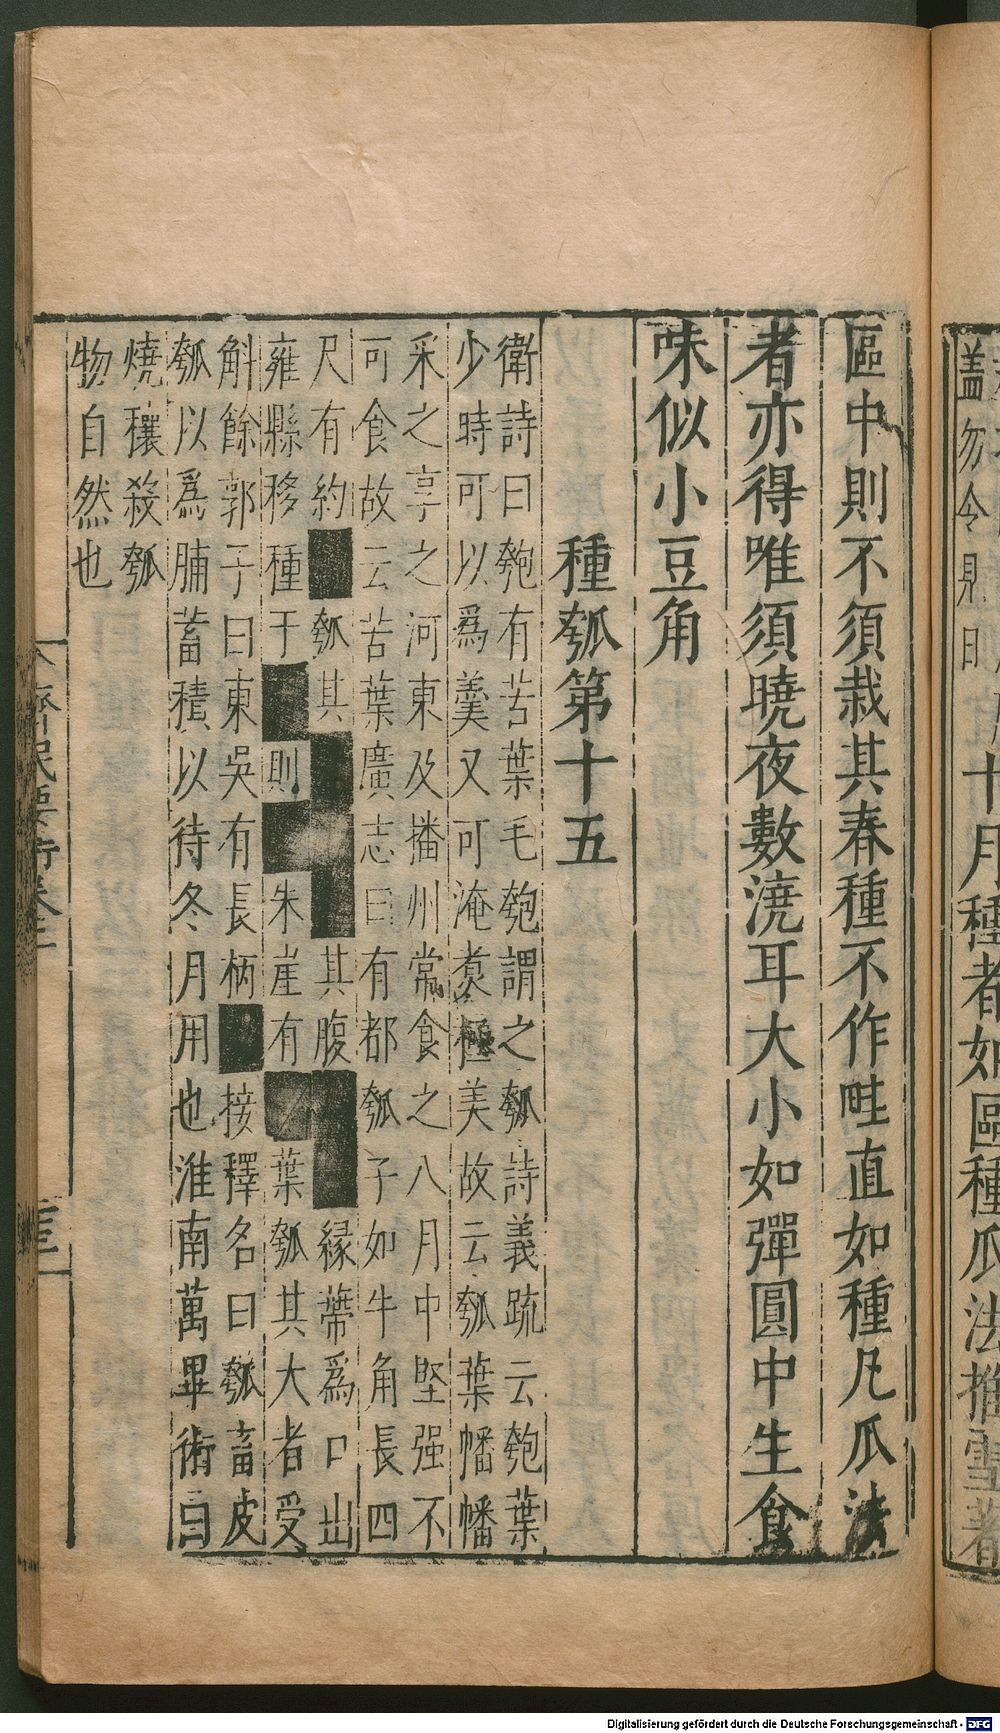 蓋勿令見日
十月種者如區種瓜法推雪著
區中則不須栽其春種不作畦直如種凡瓜法
者亦得唯須曉夜數澆耳大小如彈圓中生食
味似小豆角
種瓠第十五
衛詩曰匏有苦葉毛匏謂之瓠詩義疏云匏葉
少時可以爲羹又可淹煑極美故云瓠葉幡幡
采之享之河東及播州常食之八月中堅强不
可食故云苦葉廣志曰有都瓠子如牛角長四
尺有約 瓠其 其腹 緣蔕爲口出
雍縣移種于 則 朱崖有 葉瓠其大者受
斛餘郭子曰東吳有長柄 接釋名曰瓠畜皮
瓠以爲脯蓄積以待冬月用也淮南萬畢術曰
燒穰殺瓠
物自然也
齊民要術卷二
Digitalisierung gefördert durch die Deutsche Forschungsgemeinschaft - DFG